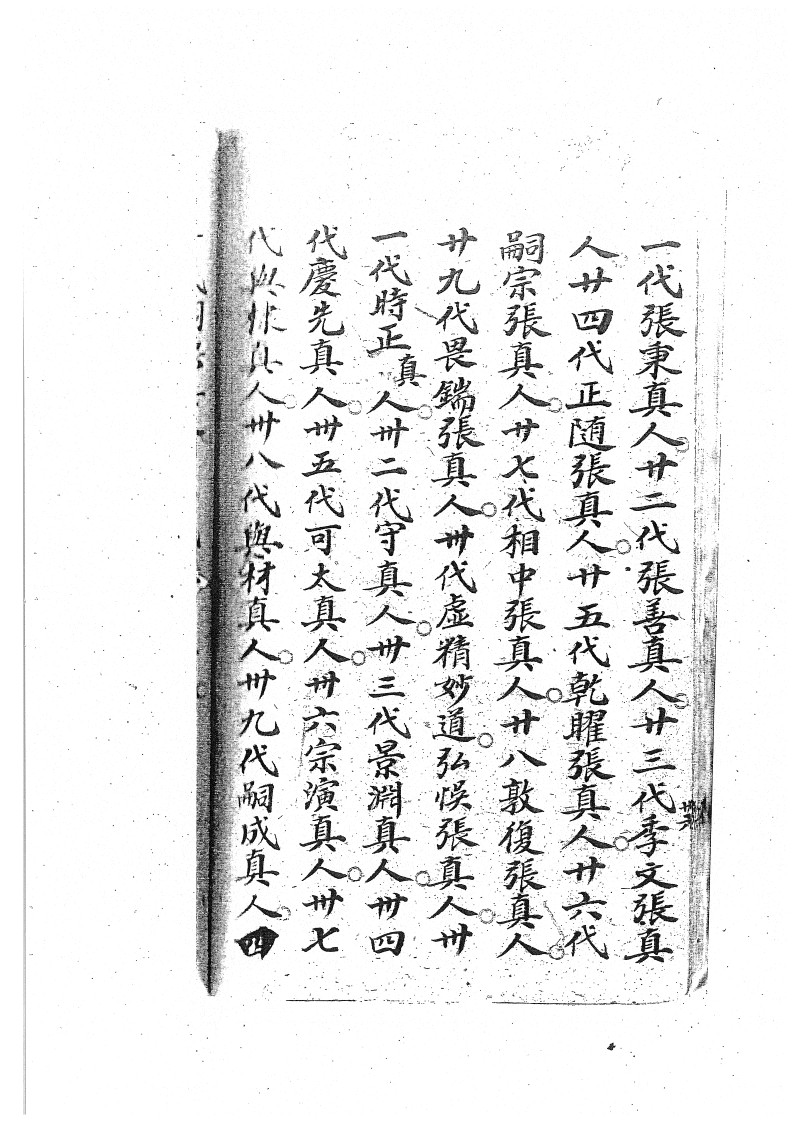 一代張秉真人廿二代張善真人廿三代季文張真
人廿四代正随張真人廿五代乾曜張真人廿六代
嗣宗張真人廿七代相中張真人廿八敦復張真人
廿九代畏鍴張真人卅代虚精妙道弘悮張真人卅
一代時正真人卅二代守真人卅三代景淵真人卅四
代慶先真人卅五代可太真人卅六宗演真人卅七
代與棣真人卅八代與材真人卅九代嗣成真人四